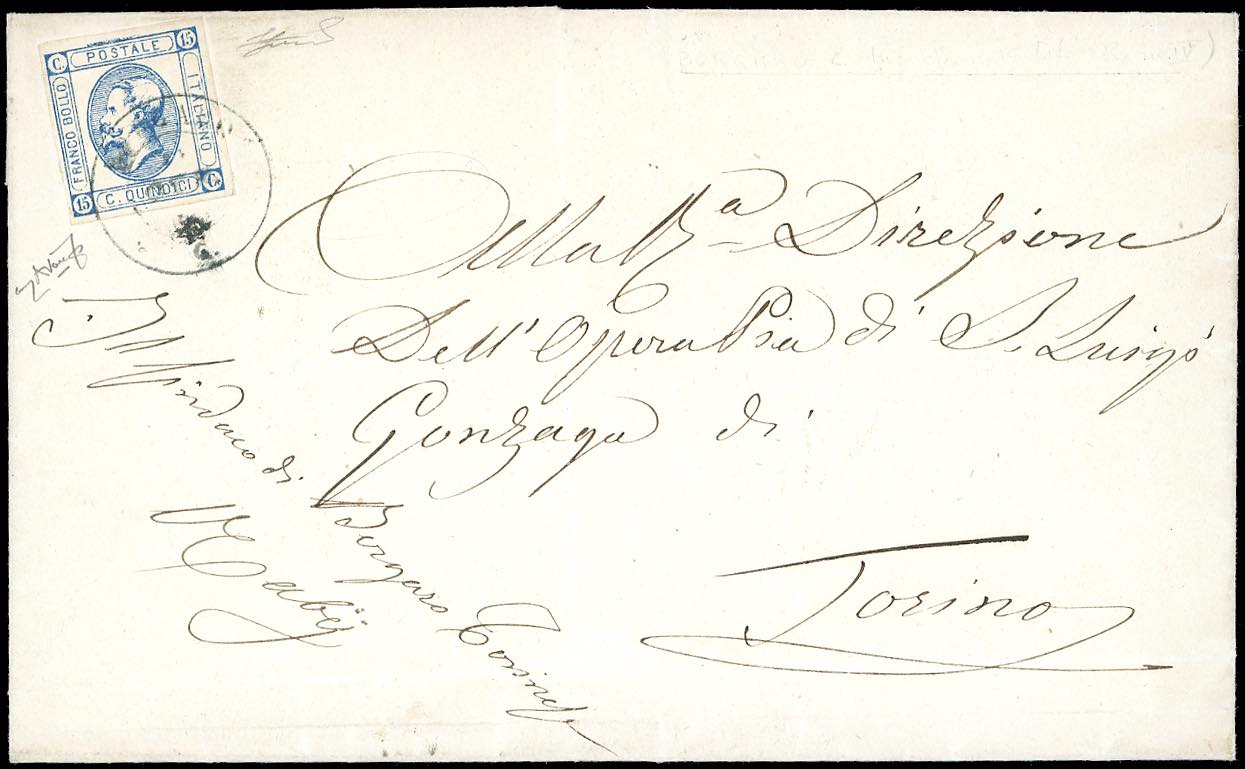 C. POSTALE 15
FRANCO BOLLO
ITALIANO
15 C. QUINDICI C.
Alla R.ª Direzione
Dell'Opera Pia di S. Luigi
Gonzaga di
Torino
Il Sindaco di Borgaro Torinese